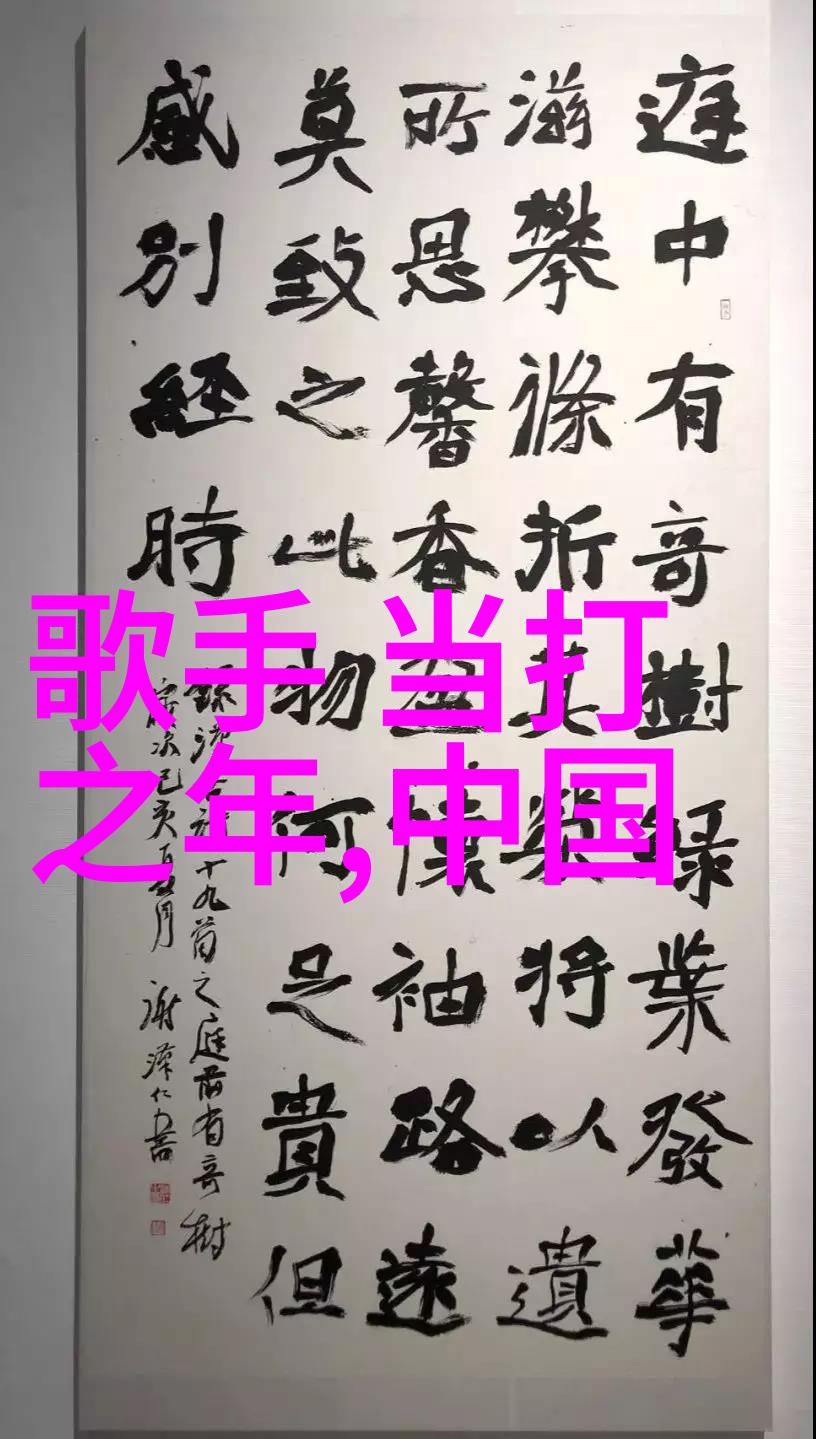 庭中有奇樹綠葉發華
滋攀條折其榮將以遺
所思馨香盈懷袖路遠
莫致之此物何足貴但
感別經時
十九首之庭前有奇樹
歲次己亥夏月 謝澤仁書
歌手 当打
之年,中国